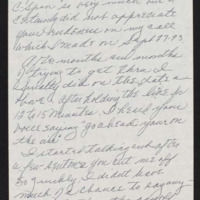 C-Span is very much on a
certainly did not appreciate
your rudeness on my call
which I made on Sept 27-93
After months and months
of trying to get thru I
finally did on this date a-
bout after holding the line for
12 to 15 minutes. I heard your
voice saying "go ahead your on
the air."
I started talking and after
a few sentences you cut me off
so quickly I didn't have
much of a chance to say any-